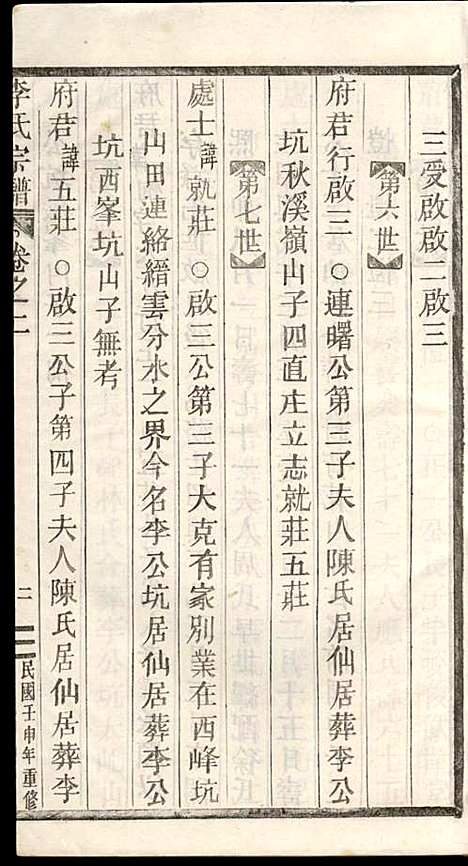 三受啟啟二啟三
第六世
府君行啟三○連曙公第三子夫人陳氏居仙居葬李公
坑秋溪嶺山子四直庄立志就莊五莊
第七世
處士諱就莊○啟三公第三子大克有家別業在西峰坑
山田連絡縉雲分水之界今名李公坑居仙居葬李公
坑西峯坑山子無考
府君諱五莊○啟三公子第四子夫人陳氏居仙居葬李
李氏宗譜 卷之二 二 民國壬申年重修